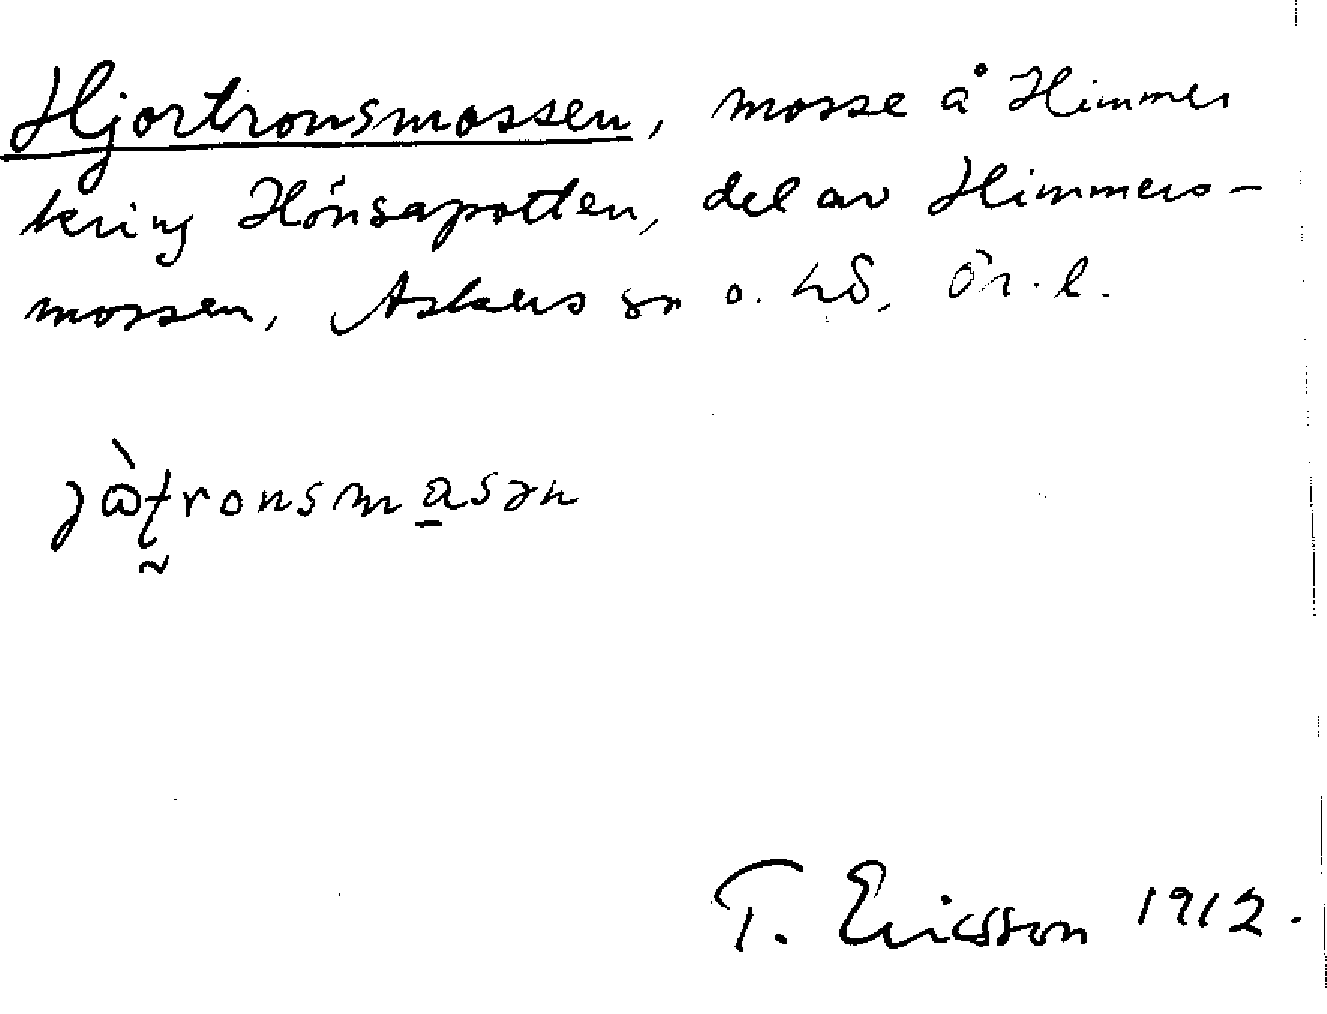 Hjortronsmossen, mosse å Himmer
kring Hönsapotten, del av Himmers-
mossen, Askers sn o. hd, Ör. l.
jὼtronsmasən
T. Ericsson 1912.